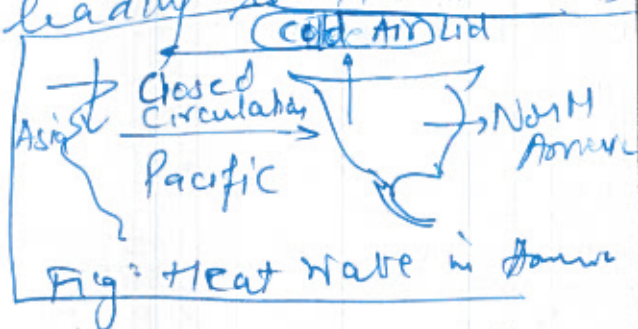 leading
Cold Air Lid
Closed
Circulation
Asia
Pacific
North
Fig: Heat Wave in